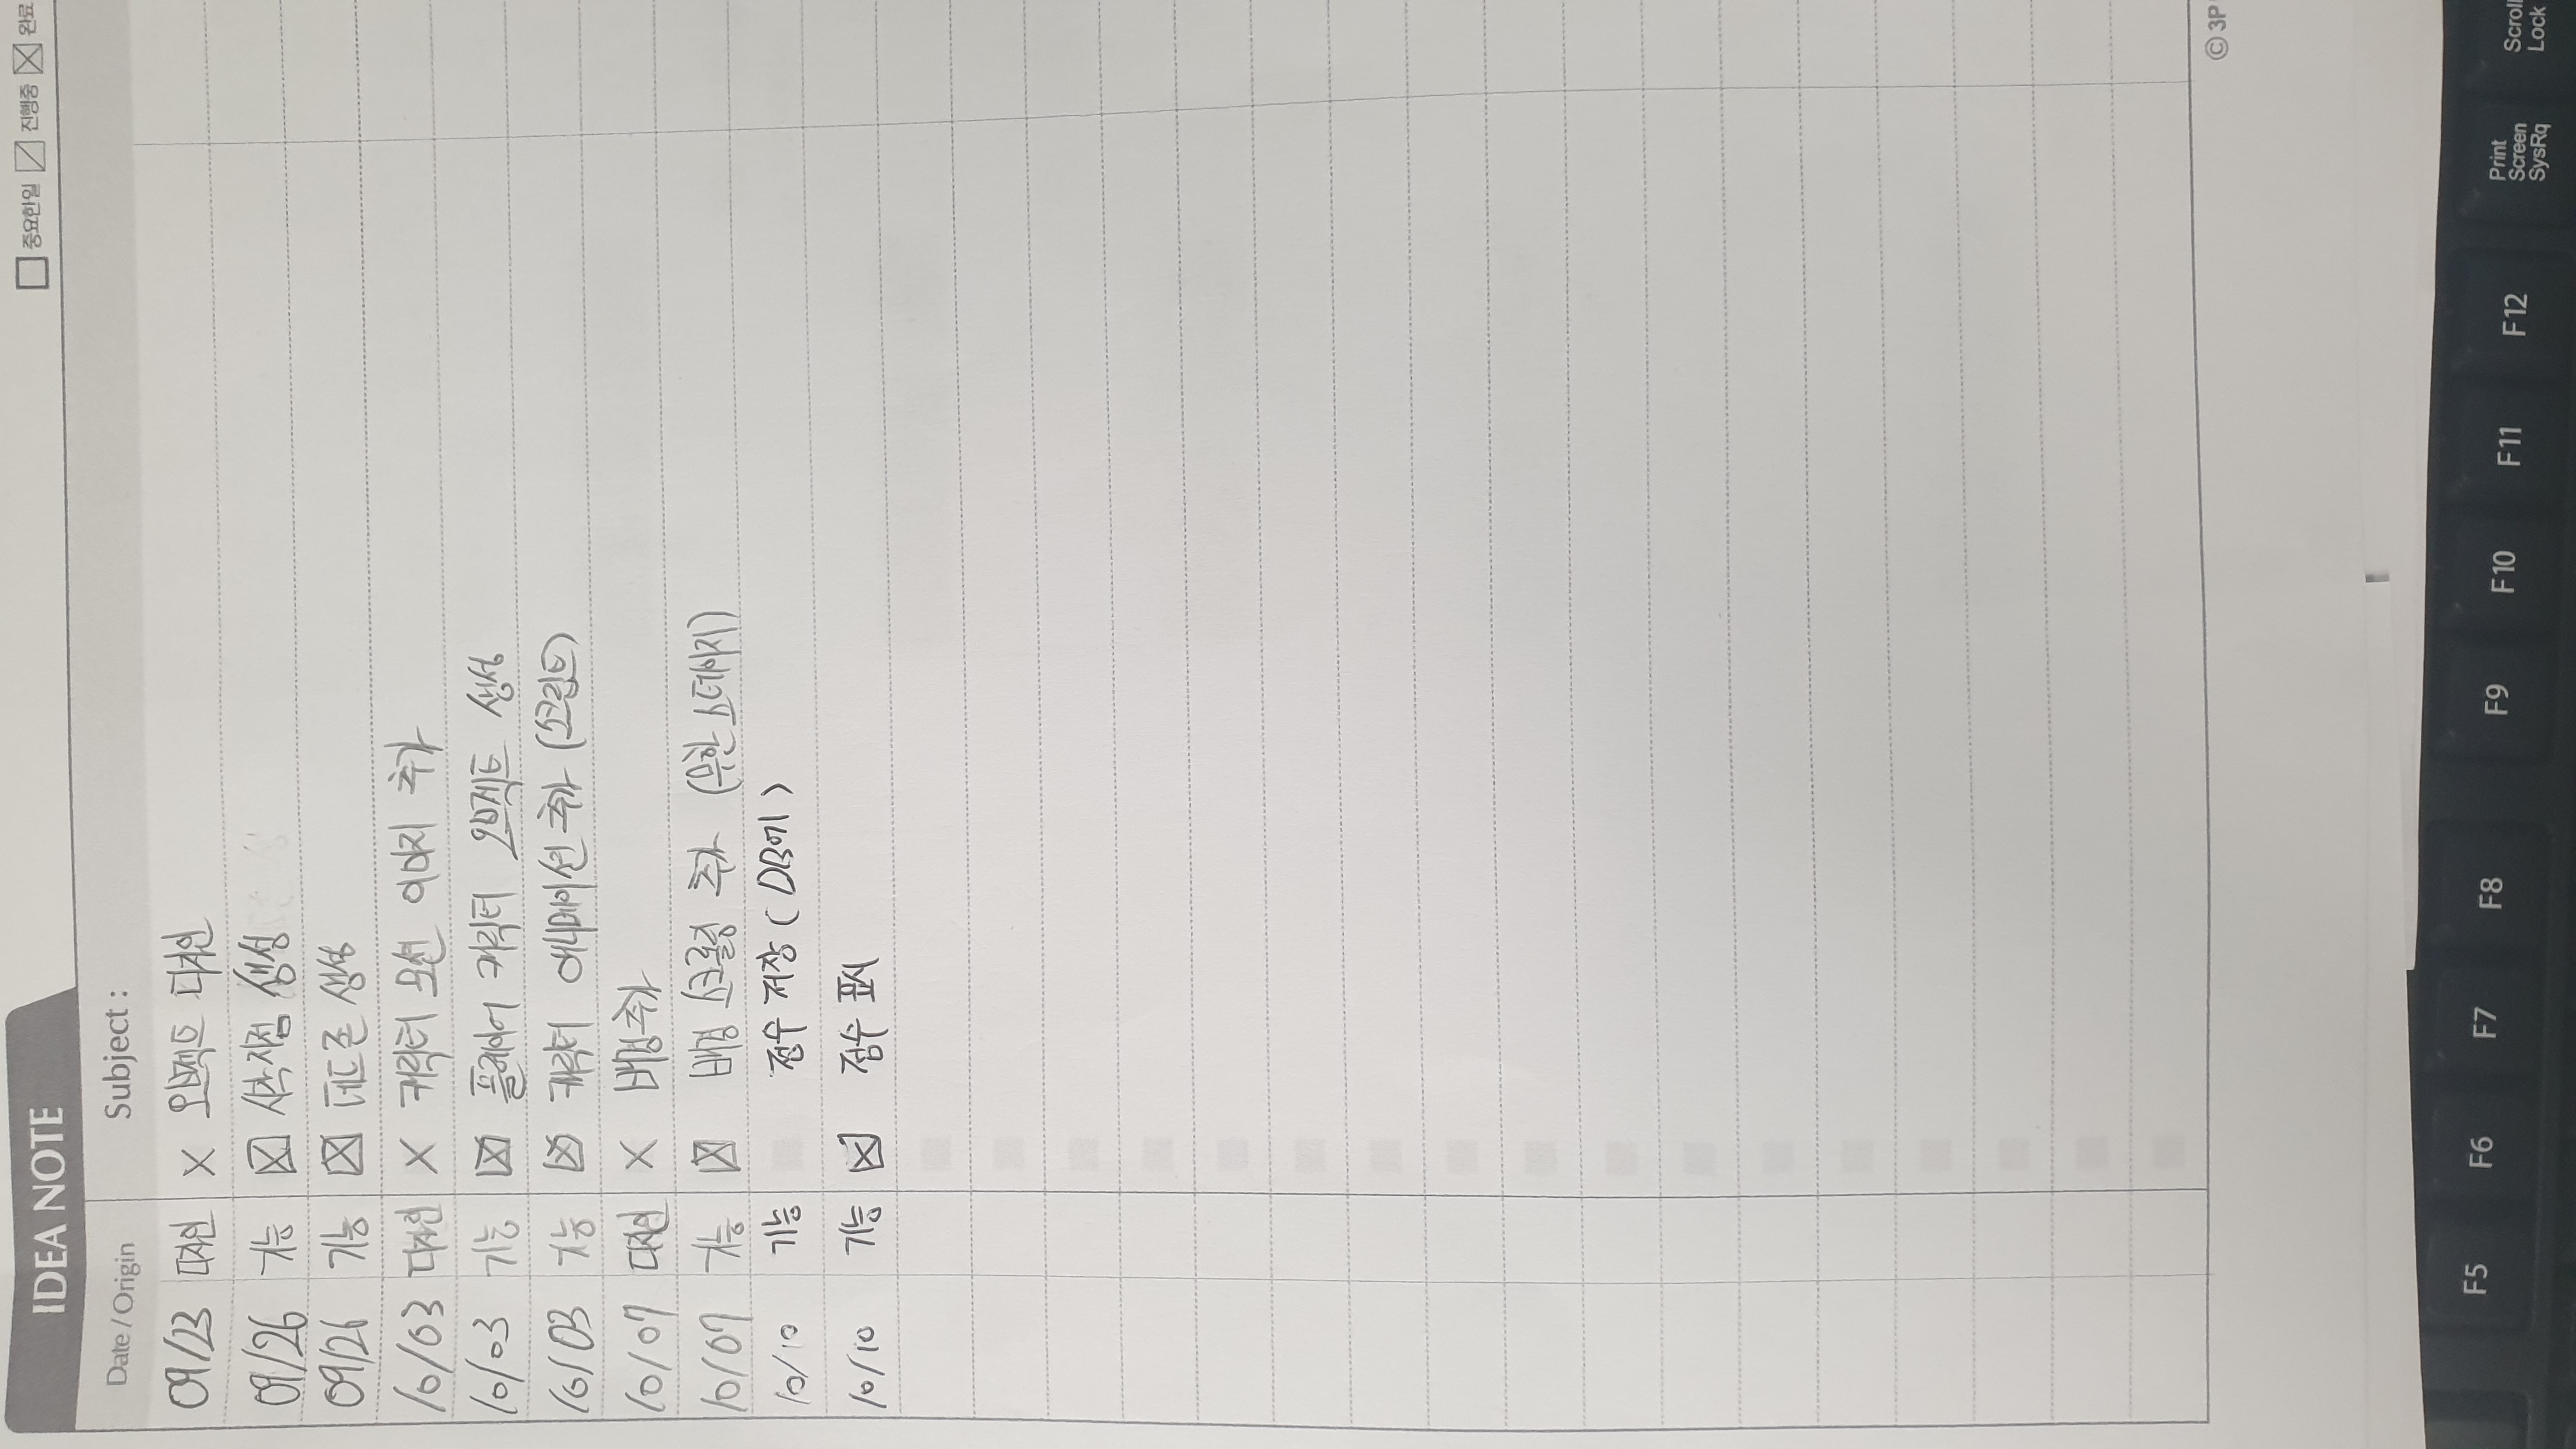 IDEA NOTE
□ 중요한일 ⍁ 진행중 ☒ 완료
Date / Origin Subject :
09/23 디자인 X 오브젝트 디자인
09/26 기능 ☒ 시작지점 생성
09/26 기능 ☒ 데드존 생성
10/03 디자인 X 캐릭터 모션 이미지 추가
10/03 기능 ☒ 플레이어 캐릭터 오브젝트 생성
10/03 기능 ☒ 캐릭터 애니메이션 추가 (스크립트)
10/07 디자인 X 배경추가
10/07 기능 ☒ 배경 스크롤링 추가 (무한 스테이지)
10/10 기능 점수 저장 (DB에)
10/10 기능 ☒ 점수 표시
© 3P
F5 F6 F7 F8 F9 F10 F11 F12 Print
Screen
SysRq
Scroll
Lock